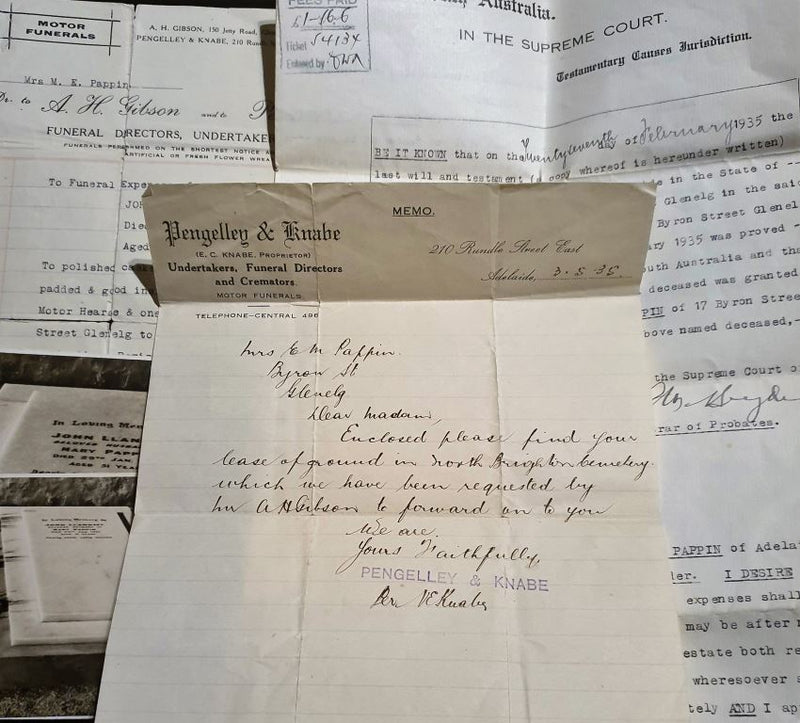 MOTOR
FUNERALS
A. H. GIBSON, 150 Jetty Road,
PENGELLEY & KNABE, 210
Mrs M. E. Pappin.
Dr. to A. H. Gibson and to
FUNERAL DIRECTORS, UNDERTAKE
FUNERALS PERFORMED ON THE SHORTEST NOTICE
ARTIFICIAL OR FRESH FLOWER
To Funeral
Died
Aged
To polished
padded & good
Motor Hearse & one
Street Glenelg to
FEES PAID
£1-16.6
Ticket 54134
Entered by
Australia.
IN THE SUPREME COURT.
Testamentary Causes Jurisdiction.
BE IT KNOWN that on the Twenty seventh day of February 1935 the
last will and testament (a copy whereof is hereunder written)
in the State of --
Glenelg in the said
Byron Street Glenel
1935 was proved -
South Australia and tha
deceased was granted
PIN of 17 Byron Street
above named deceased,-
the Supreme Court of
of Probates.
PAPPIN of Adela
I DESIRE
expenses shall
may be after
estate both
wheresoever
AND I ap
MEMO.
Pengelley & Knabe
(E. C. KNABE, PROPRIETOR)
Undertakers, Funeral Directors
and Cremators.
MOTOR FUNERALS.
TELEPHONE-CENTRAL 496
210 Rundle Street East
Adelaide, 3. 5. 35.
Mrs E M Pappin.
Byron St
Glenelg
Dear Madam,
Enclosed please find your
lease of ground in North Brighton Cemetery.
which we have been requested by
Mr A H Gibson to forward on to you
We are.
Yours Faithfully,
PENGELLEY & KNABE
Per VE Knabe
In Loving
JOHN LLAN
BELOVED
MARY PAPP
DIED 29TH JAN.
AGED 51 YEA